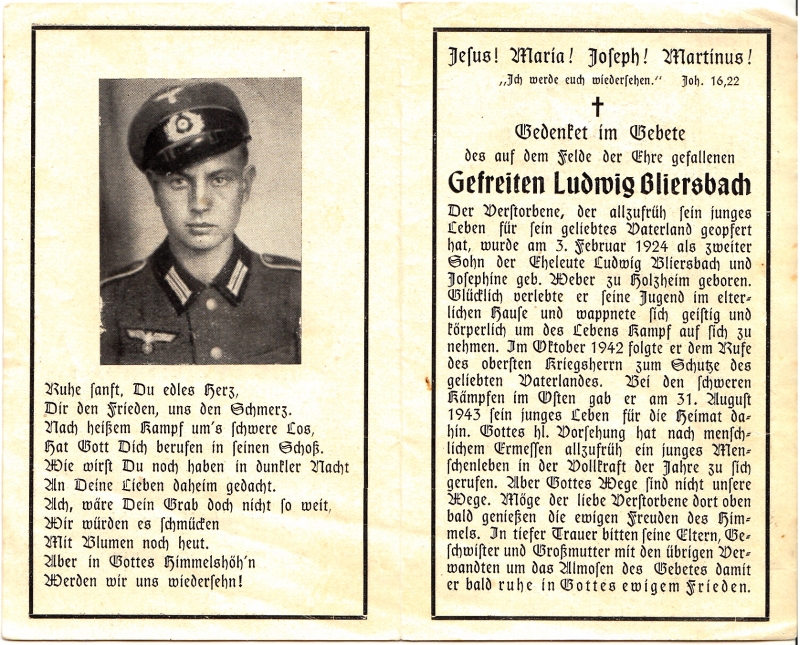 Ruhe sanft, Du edles Herz,
Dir den Frieden, uns den Schmerz.
Nach heißem Kampf um's schwere Los,
Hat Gott Dich berufen in seinen Schoß.
Wie wirst Du noch haben in dunkler Nacht
An Deine Lieben daheim gedacht.
Ach, wäre Dein Grab doch nicht so weit,
Wir würden es schmücken
Mit Blumen noch heut.
Aber in Gottes Himmelshöh'n
Werden wir uns wiedersehn!
Jesus! Maria! Joseph! Martinus!
„Ich werde euch wiedersehen.“ Joh. 16,22
Gedenket im Gebete
des auf dem Felde der Ehre gefallenen
Gefreiten Ludwig Bliersbach
Der Verstorbene, der allzufrüh sein junges
Leben für sein geliebtes Vaterland geopfert
hat, wurde am 3. Februar 1924 als zweiter
Sohn der Eheleute Ludwig Bliersbach und
Josephine geb. Weber zu Holzheim geboren.
Glücklich verlebte er seine Jugend im elter-
lichen Hause und wappnete sich geistig und
körperlich um des Lebens Kampf auf sich zu
nehmen. Im Oktober 1942 folgte er dem Rufe
des obersten Kriegsherrn zum Schutze des
geliebten Vaterlandes. Bei den schweren
Kämpfen im Osten gab er am 31. August
1943 sein junges Leben für die Heimat da-
hin. Gottes hl. Vorsehung hat nach mensch-
lichem Ermessen allzufrüh ein junges Men-
schenleben in der Vollkraft der Jahre zu sich
gerufen. Aber Gottes Wege sind nicht unsere
Wege. Möge der liebe Verstorbene dort oben
bald genießen die ewigen Freuden des Him-
mels. In tiefer Trauer bitten seine Eltern, Ge-
schwister und Großmutter mit den übrigen Ver-
wandten um das Almosen des Gebetes damit
er bald ruhe in Gottes ewigem Frieden.